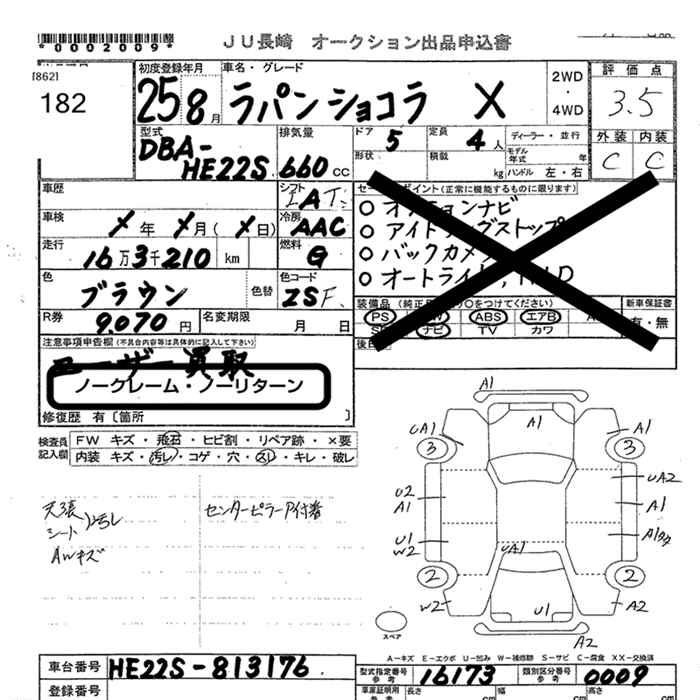 *0002009*
JU長崎 オークション出品申込書
[862]
182
初度登録年月
25 8月
車名・グレード
ラパンショコラ X
2WD
・
4WD
評価点
3.5
外装 内装
C C
型式
DBA-
HE22S
排気量
660 CC
ドア
5
定員
4人
形状
積載
kg
ディーラー・並行
モデル
年式 年
ハンドル 左・右
車歴
シフト
IAT
車検
X年 X月(X日)
冷房
AAC
走行
16万3千210 km
燃料
G
色
ブラウン
色替
色コード
ZSF
R券
9.070円
名変期限
月 日
セールスポイント(正常に機能するものに限ります)
○オプションナビ
○アイドリングストップ
○バックカメラ
○オートライト
装備品
PS
ABS
エアB
ナビ
TV
カワ
新車保証書
有・無
注意事項申告欄(不具合内容等は具体的に記入して下さい)
ユーザー買取
ノークレーム・ノーリターン
修復歴 有〔箇所 〕
検査員
記入欄
FW キズ・飛石・ヒビ割・リペア跡・×要
内装 キズ・汚レ・コゲ・穴・スレ・キレ・破レ
天張
シート 汚レ
AWキズ
センターピラーア付着
A1
A1
UA1
A1
3
3
UA2
U2
A1
A1
U1
W2
UA1
2
2
W2
U1
A2
A2
スペア
A-キズ E-エクボ U-凹み W-補修跡 S-サビ C-腐食 XX-交換済
車台番号
HE22S-813176
型式指定番号
参考
16173
類別区分番号
参考
0009
登録番号
車庫証明用
参考
長さ
cm
幅
cm
高さ
cm